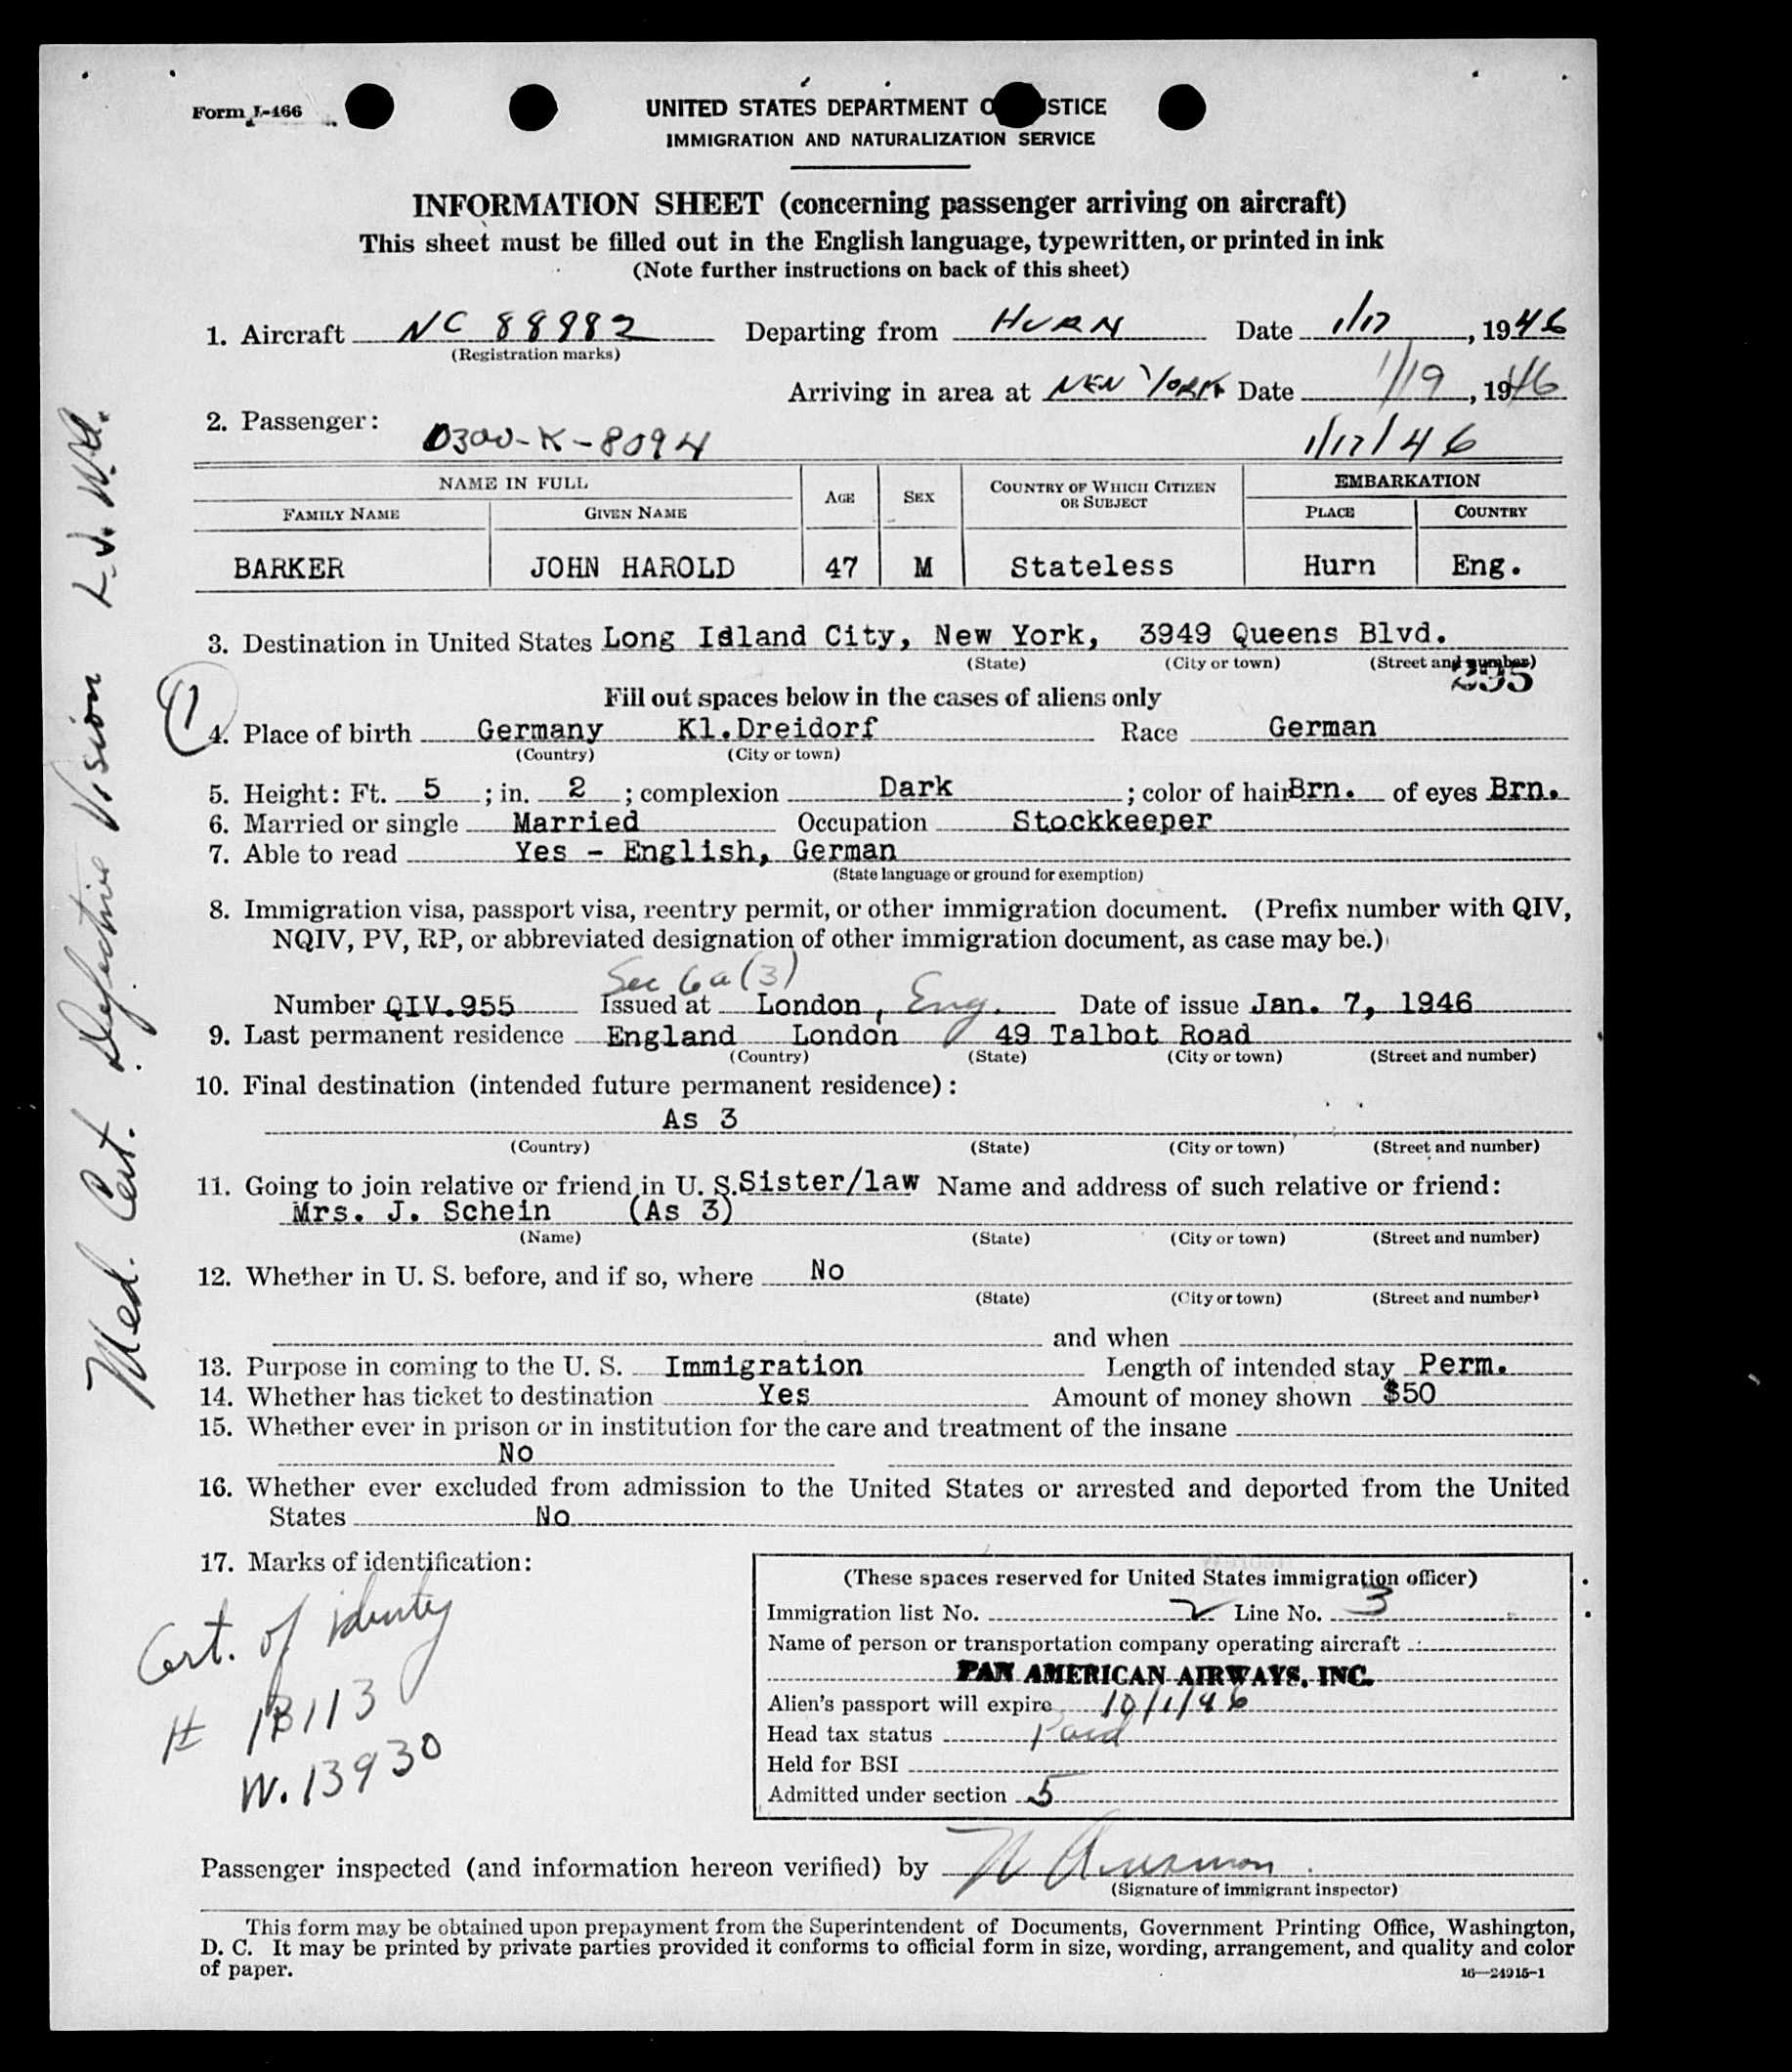 Form I-466
UNITED STATES DEPARTMENT O STICE
IMMIGRATION AND NATURALIZATION SERVICE
INFORMATION SHEET (concerning passenger arriving on aircraft)
This sheet must be filled out in the English language, typewritten, or printed in ink
(Note further instructions on back of this sheet)
1. Aircraft NC 88982 Departing from HURN Date 1/17, 1946
(Registration marks)
Arriving in area at NEW YORK Date 1/19, 1946
2. Passenger: 0300-K-8094 1/17/46
NAME IN FULL AGE SEX COUNTRY OF WHICH CITIZEN OR SUBJECT EMBARKATION
FAMILY NAME GIVEN NAME PLACE COUNTRY
BARKER JOHN HAROLD 47 M Stateless Hurn Eng.
3. Destination in United States Long Island City, New York, 3949 Queens Blvd.
(State) (City or town) (Street and number)
295
Fill out spaces below in the cases of aliens only
4. Place of birth Germany Kl.Dreidorf Race German
(Country) (City or town)
5. Height: Ft. 5 ; in. 2 ; complexion Dark ; color of hair Brn. of eyes Brn.
6. Married or single Married Occupation Stockkeeper
7. Able to read Yes - English, German
(State language or ground for exemption)
8. Immigration visa, passport visa, reentry permit, or other immigration document. (Prefix number with QIV,
NQIV, PV, RP, or abbreviated designation of other immigration document, as case may be.)
Sec 6a(3)
Number QIV.955 Issued at London, Eng. Date of issue Jan. 7, 1946
9. Last permanent residence England London 49 Talbot Road
(Country) (State) (City or town) (Street and number)
10. Final destination (intended future permanent residence):
As 3
(Country) (State) (City or town) (Street and number)
11. Going to join relative or friend in U. S. Sister/law Name and address of such relative or friend:
Mrs. J. Schein (As 3)
(Name) (State) (City or town) (Street and number)
12. Whether in U. S. before, and if so, where No
(State) (City or town) (Street and number)
and when
13. Purpose in coming to the U. S. Immigration Length of intended stay Perm.
14. Whether has ticket to destination Yes Amount of money shown $50
15. Whether ever in prison or in institution for the care and treatment of the insane
No
16. Whether ever excluded from admission to the United States or arrested and deported from the United
States No
17. Marks of identification:
Cert. of identity
# 1B113
W. 13930
(These spaces reserved for United States immigration officer)
Immigration list No. 2 Line No. 3
Name of person or transportation company operating aircraft
PAN AMERICAN AIRWAYS, INC.
Alien's passport will expire 10/1/46
Head tax status Paid
Held for BSI
Admitted under section 5
Passenger inspected (and information hereon verified) by
(Signature of immigrant inspector)
This form may be obtained upon prepayment from the Superintendent of Documents, Government Printing Office, Washington,
D. C. It may be printed by private parties provided it conforms to official form in size, wording, arrangement, and quality and color
of paper.
16—24915-1
Med. Cert. Defective Vision